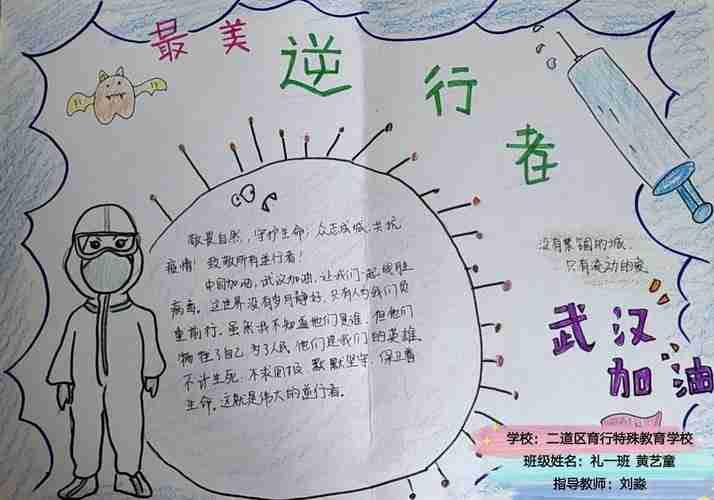 最美逆行者
敬畏自然,守护生命,众志成城,共抗
疫情!致敬所有逆行者!
中国加油,武汉加油,让我们一起战胜
病毒。这世界没有岁月静好,只有人为我们负
重前行。虽然我不知道他们是谁,但他们
牺牲了自己,为了人民,他们是我们的英雄。
不计生死,不求回报,默默坚守,保卫着
生命。这就是伟大的逆行者。
没有禁锢的城,
只有流动的爱
武汉
加油
学校:二道区育行特殊教育学校
班级姓名:礼一班 黄艺童
指导教师:刘淼